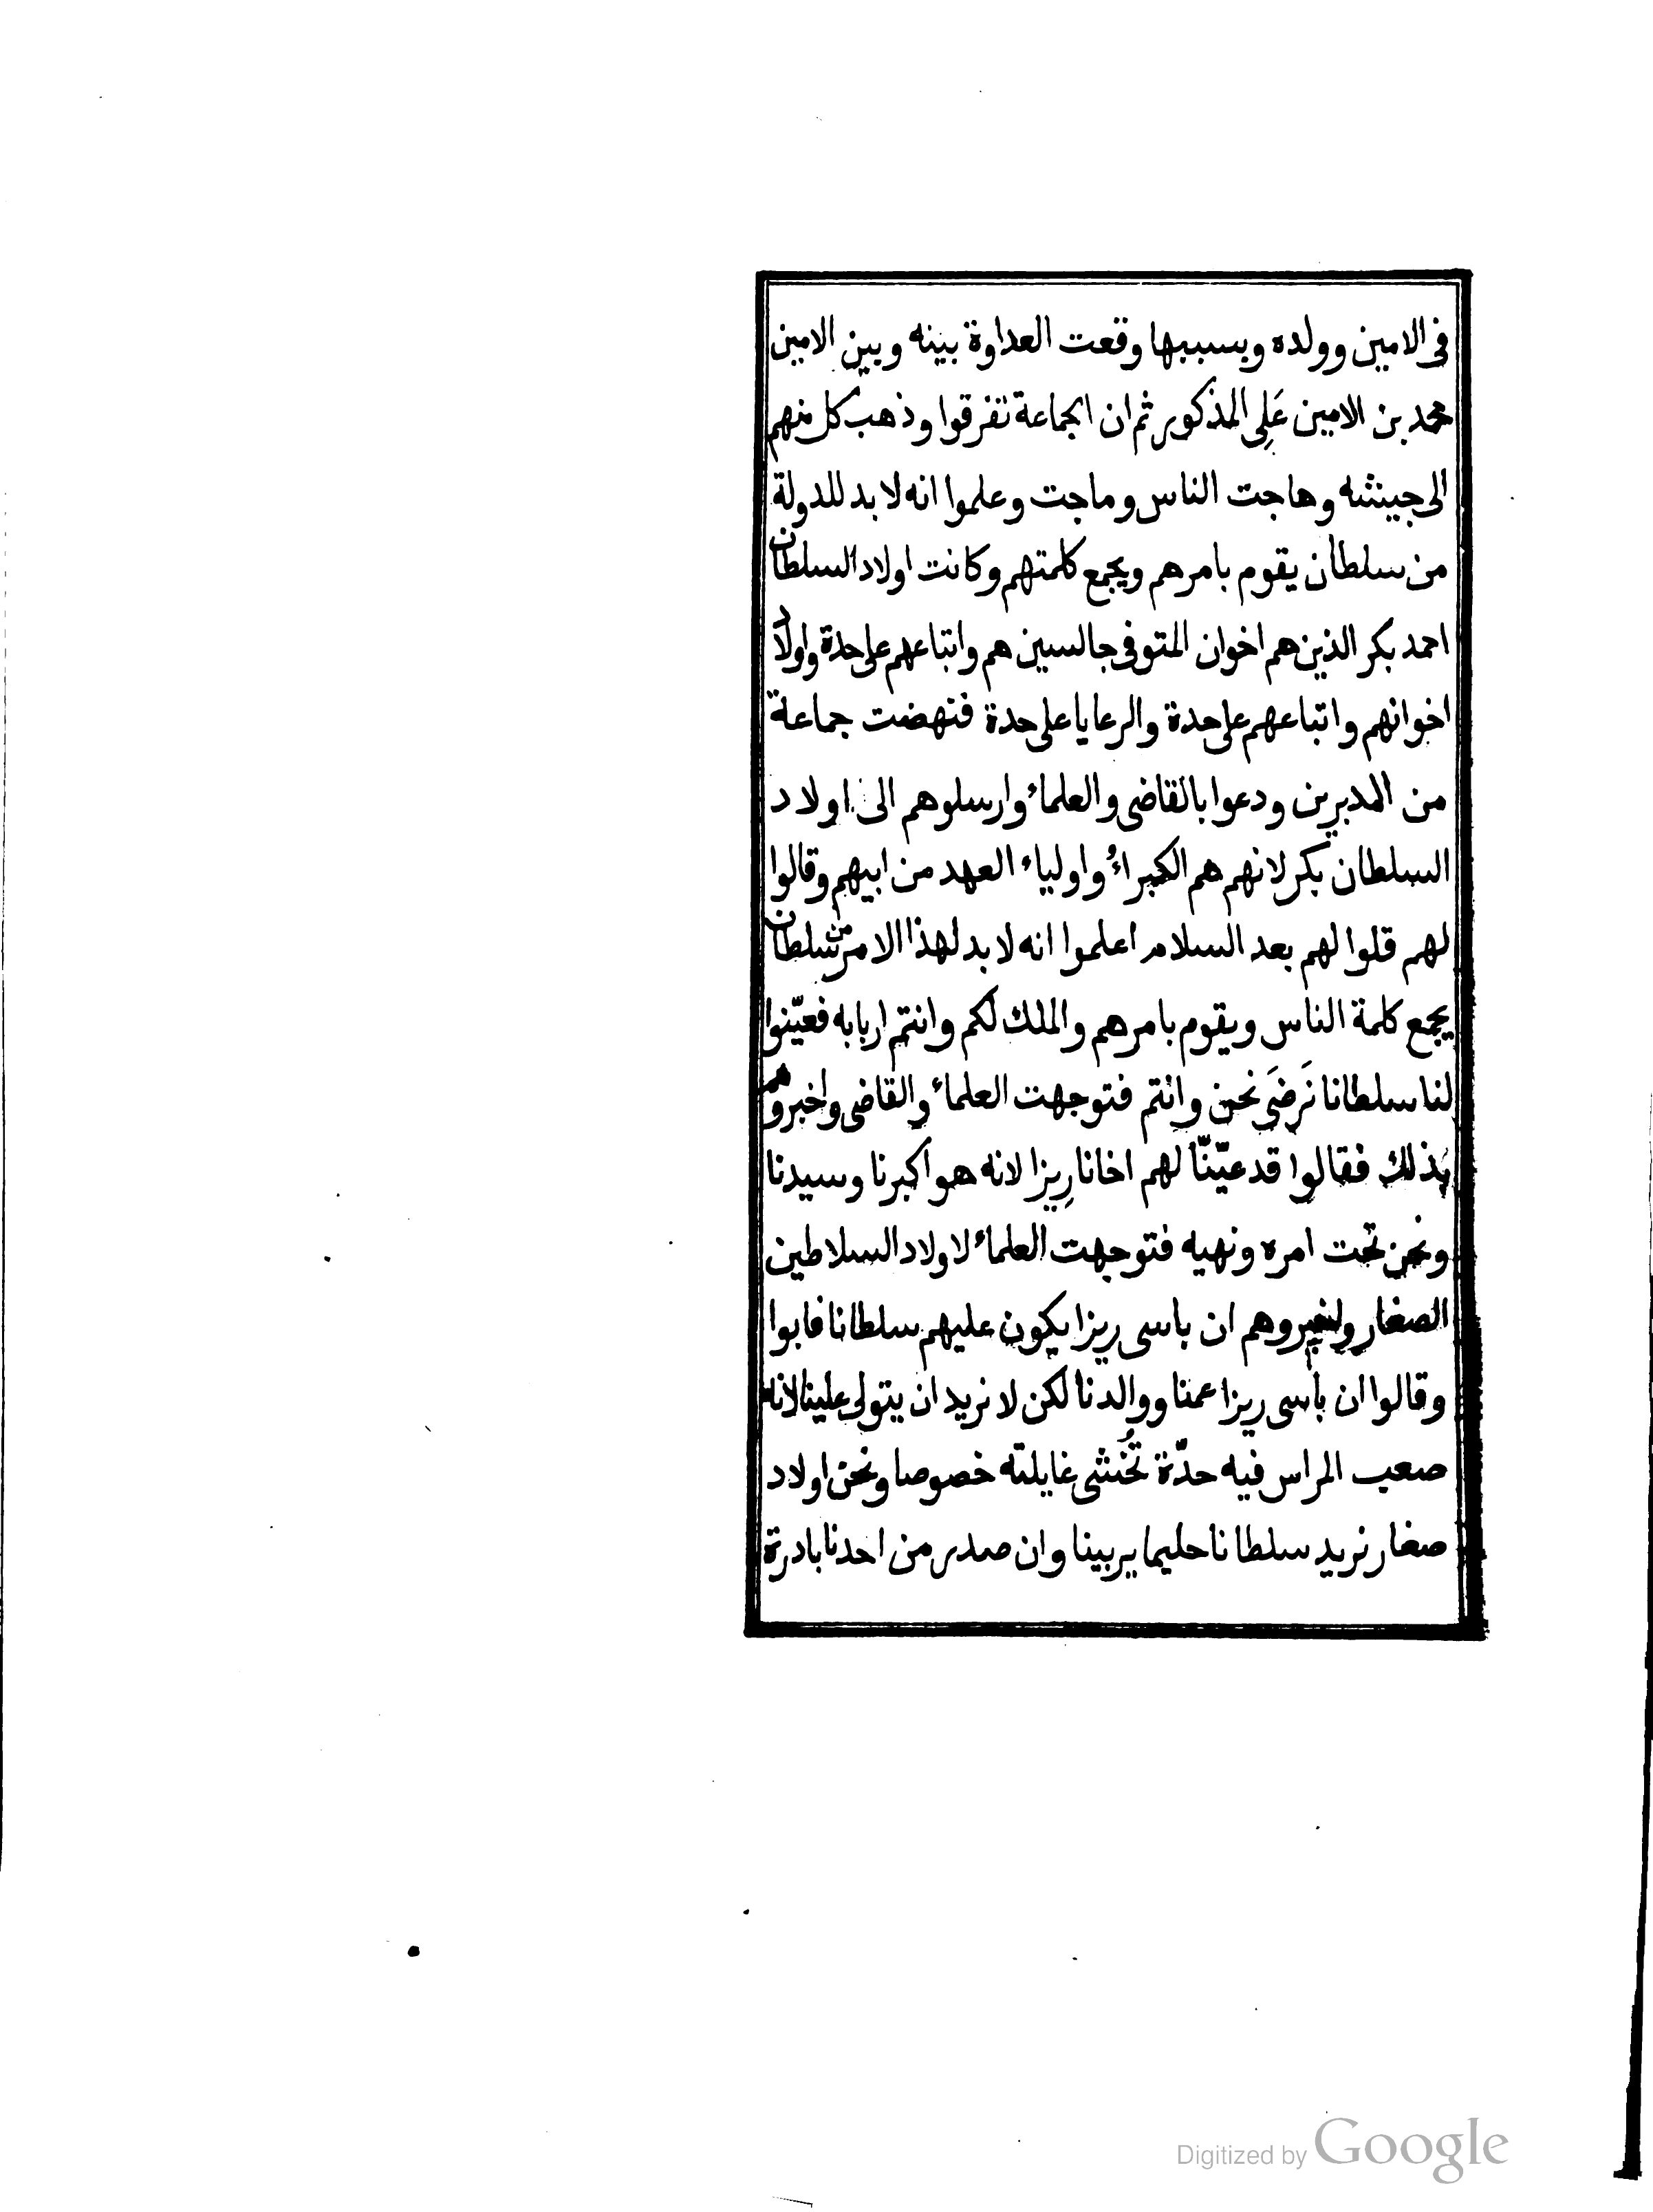 فى الامين وولده وبسببها وقعت العداوة بينه وبين الامين
محمد بن الامين عَلِى المذكور ثم ان الجماعة تفرقوا وذهب كل منهم
الى جيشه وهاجت الناس وماجت وعلموا انه لا بد للدولة
من سلطان يقوم بامرهم ويجمع كلمتهم وكانت اولاد السلطان
احمد بكر الذين هم اخوان المتوفى جالسين هم واتباعهم على حدة واولاد
اخوانهم واتباعهم على حدة والرعايا على حدة فنهضت جماعة
من المدبرين ودعوا بالقاضى والعلماء وارسلوهم الى اولاد
السلطان بكر لانهم هم الكبراءُ واولياء العهد من ابيهم وقالوا
لهم قلوا لهم بعد السلام اعلموا انه لا بد لهذا الامر من سلطان
يجمع كلمة الناس ويقوم بامرهم والملك لكم وانتم اربابه فعيّنوا
لنا سلطانا نَرضَى نحن وانتم فتوجهت العلماء والقاضى واخبروهم
بذلك فقالوا قد عيّنّا لهم اخانا رِيزا لانه هو اكبرنا وسيدنا
ونحن تحت امره ونهيه فتوجهت العلماء لاولاد السلاطين
الصغار واخبروهم ان باسى ريزا يكون عليهم سلطانا فابوا
وقالوا ان باسى ريزا عمنا ووالدنا لكن لا نريد ان يتولى علينا لانه
صعب المراس فيه حدّة تُخشى غايلته خصوصا ونحن اولاد
صغار نريد سلطانا حليما يربينا وان صدر من احدنا بادرة
Digitized by Google